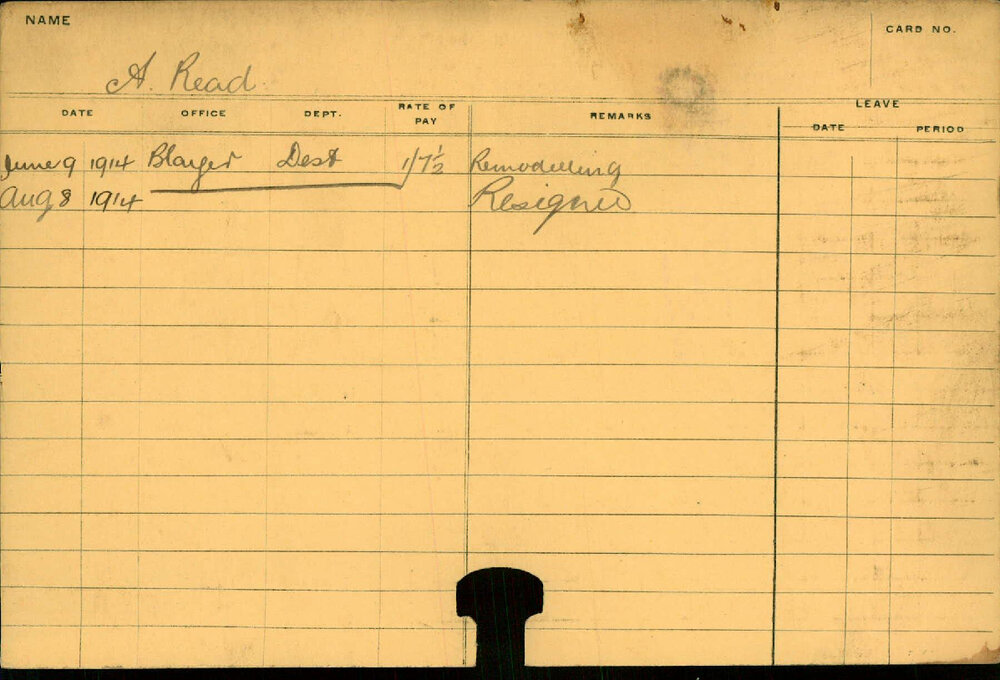 NAME
CARD NO.
A. Read
DATE OFFICE DEPT. RATE OF PAY REMARKS LEAVE
DATE PERIOD
June 9 1914 Dest 1/7½ Remodelling
Aug 8 1914 Resigned